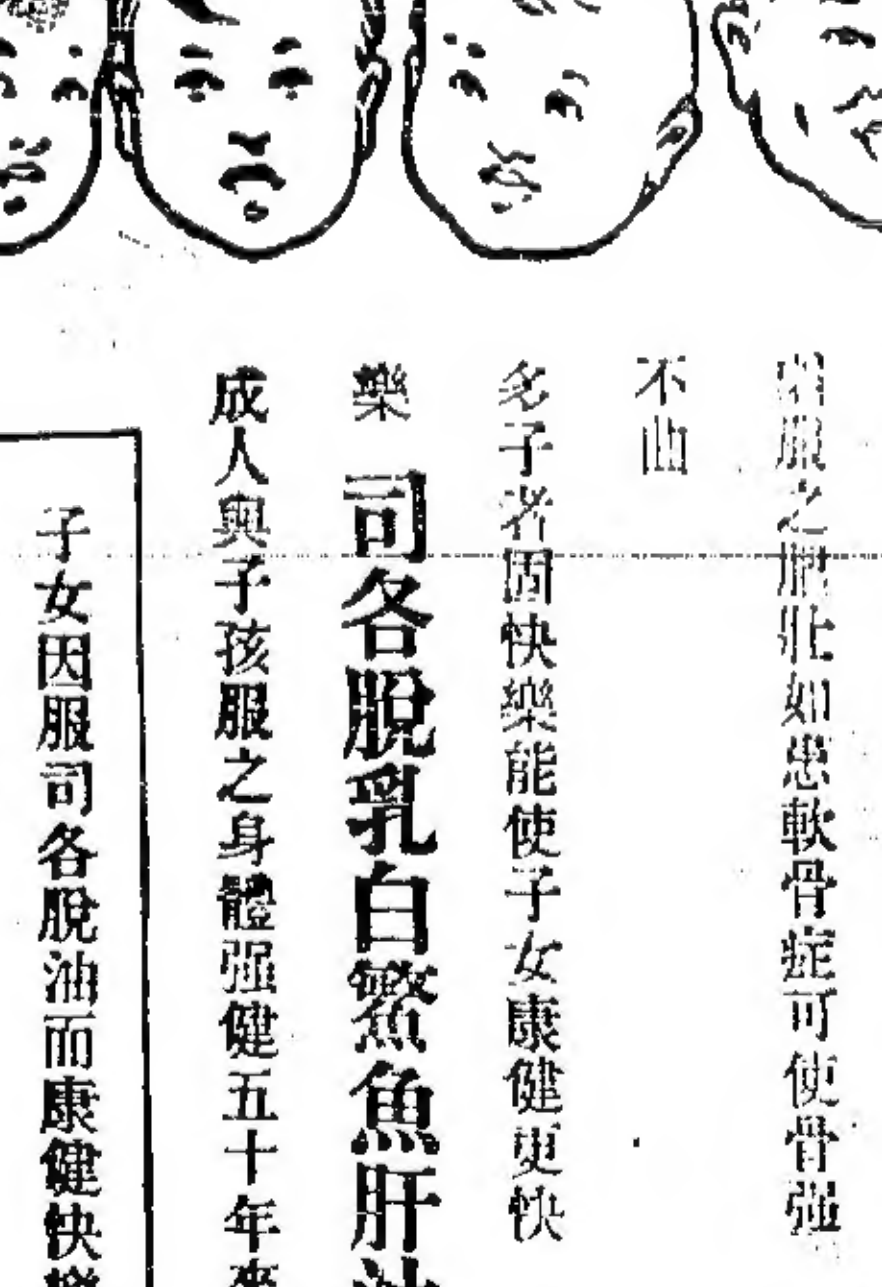 服之肥壯如患軟骨症可使骨强
不曲
多子者固快樂能使子女康健更快
樂 司各脫乳白鰵魚肝油
成人與子孩服之身體强健五十年來
子女因服司各脫油而康健快樂